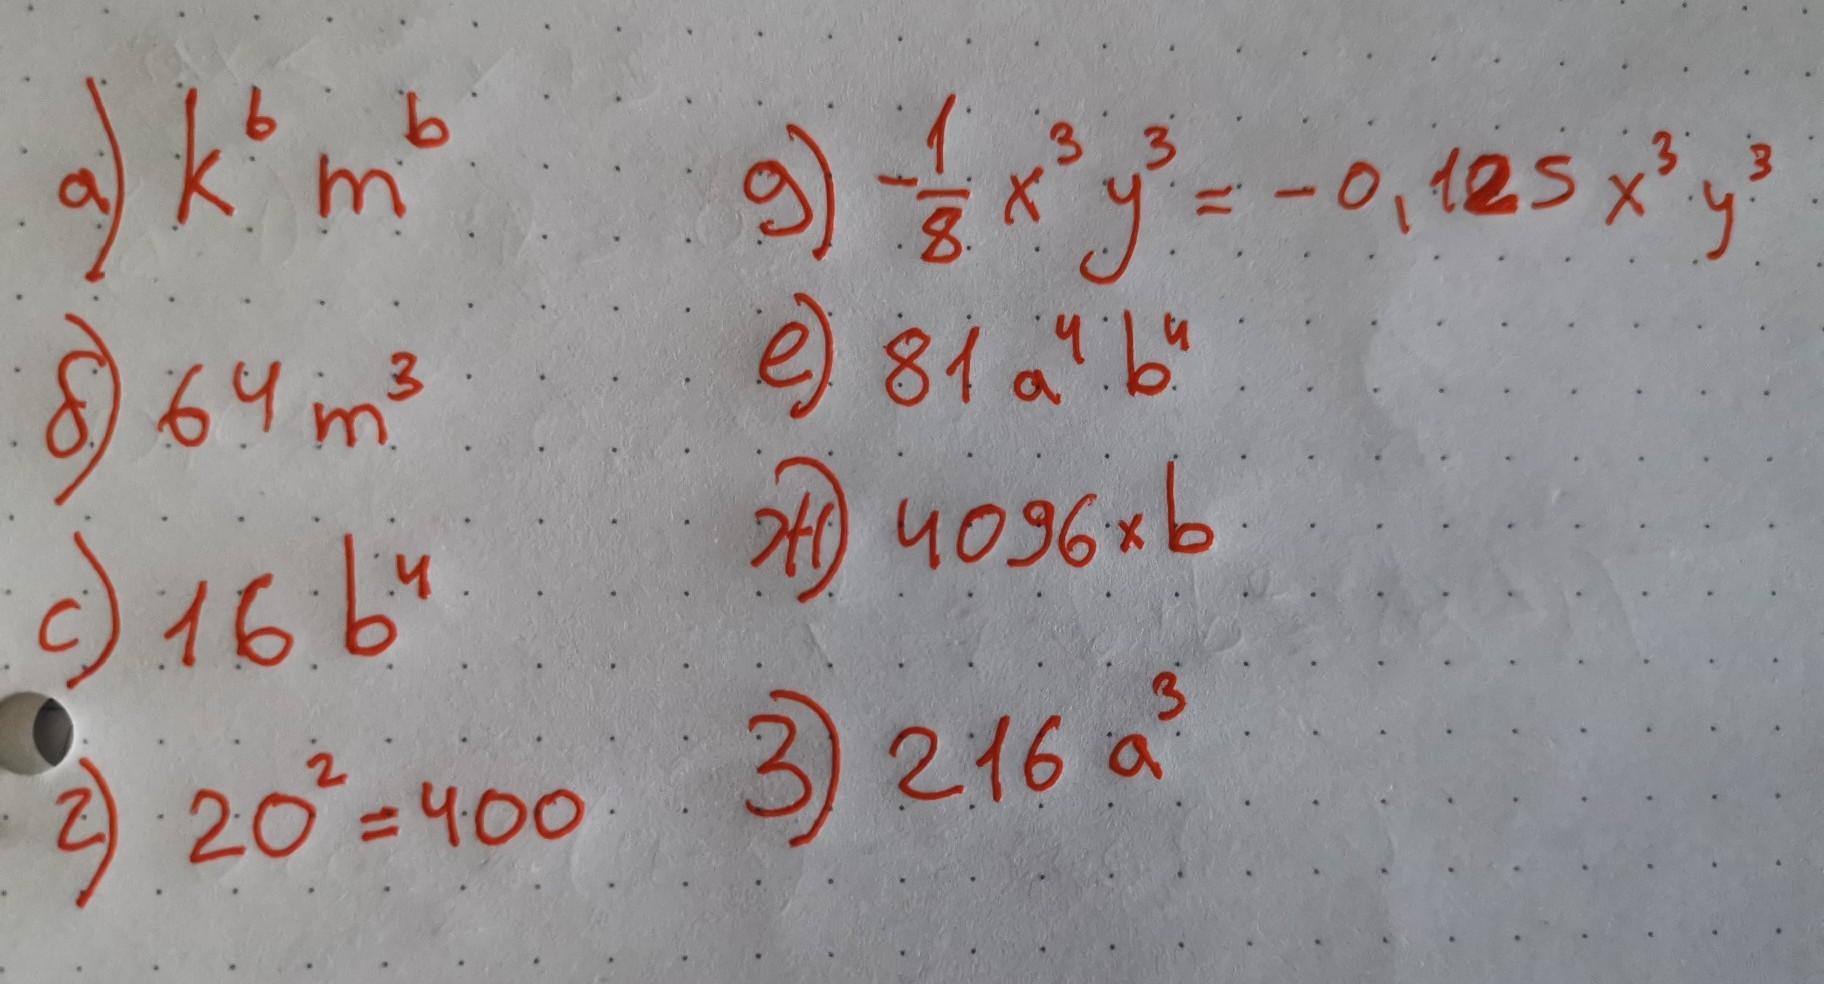 а) k⁶ m⁶
б) 64 m³
с) 16 b⁴
г) 20² = 400
д) -1/8 x³ y³ = -0,125 x³ y³
е) 81 a⁴ b⁴
ж) 4096 x b
з) 216 a³